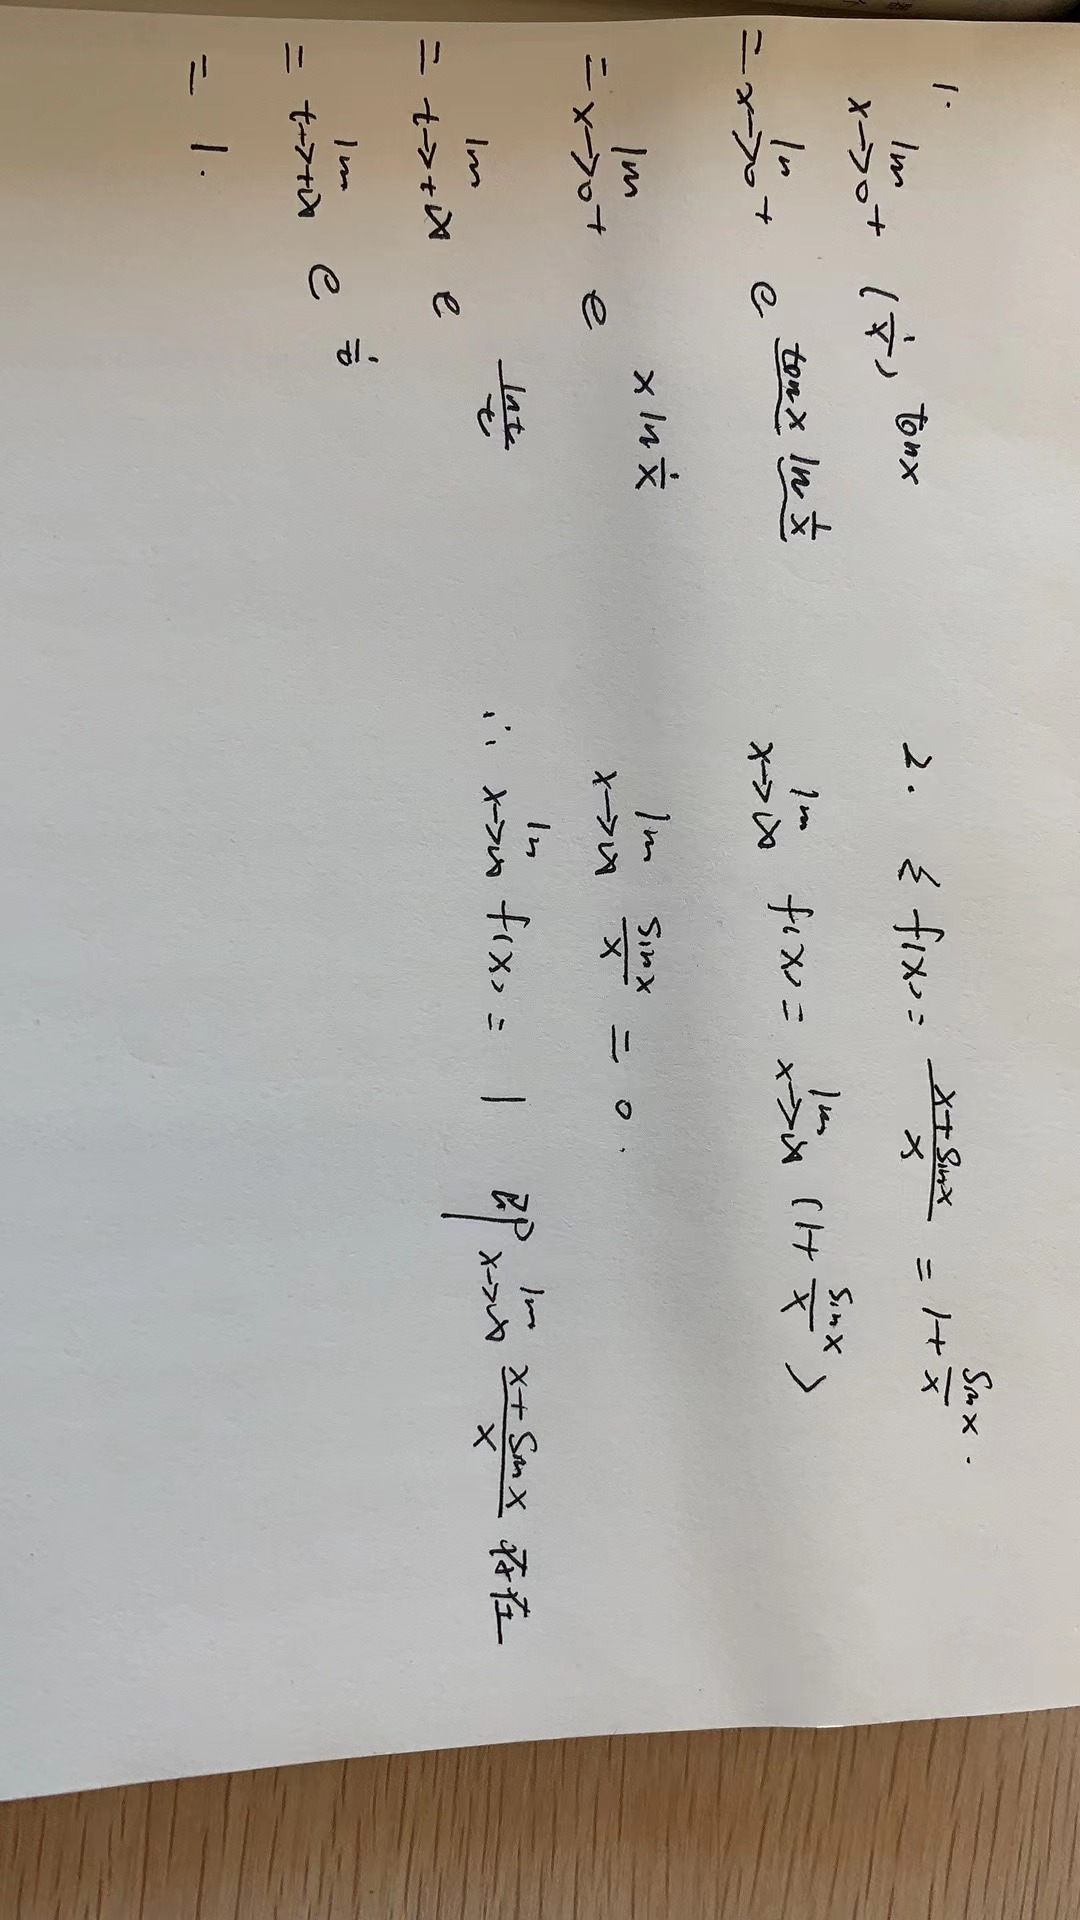 1. lim x→0+ (1/x)^tanx
= lim x→0+ e^(tanx ln 1/x)
= lim x→0+ e^(x ln 1/x)
= lim t→+∞ e^(lnt/t)
= lim t→+∞ e^(1/t)
= 1.
2. 令 f(x) = (x+sinx)/x = 1+ sinx/x.
lim x→∞ f(x) = lim x→∞ (1+ sinx/x)
lim x→∞ sinx/x = 0.
∴ lim x→∞ f(x) = 1 即 lim x→∞ (x+sinx)/x 存在